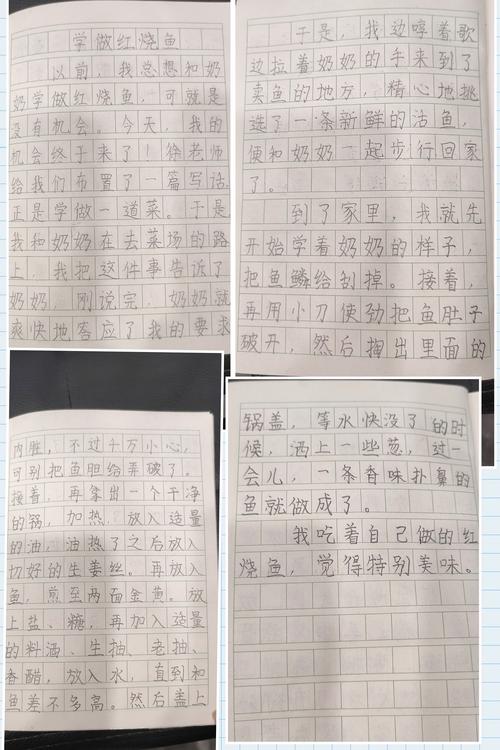 学做红烧鱼
以前，我总想和奶
奶学做红烧鱼，可就是
没有机会。今天，我的
机会终于来了！徐老师
给我们布置了一篇写话，
正是学做一道菜。于是，
我和奶奶在去菜场的路
上，我把这件事告诉了
奶奶，刚说完，奶奶就
爽快地答应了我的要求
于是，我边哼着歌
边拉着奶奶的手来到了
卖鱼的地方，精心地挑
选了一条新鲜的活鱼，
便和奶奶一起步行回家
了。
到了家里，我就先
开始学着奶奶的样子，
把鱼鳞给刮掉。接着，
再用小刀使劲把鱼肚子
破开，然后掏出里面的
内脏，不过千万小心，
可别把鱼胆给弄破了。
接着，再拿出一个干净
的锅，加热，放入适量
的油，油热了之后放入
切好的生姜丝。再放入
鱼，煎至两面金黄。放
上盐、糖，再加入适量
的料酒、生抽、老抽、
香醋，放入水，直到和
鱼差不多高。然后盖上
锅盖，等水快没了的时
候，洒上一些葱，过一
会儿，一条香味扑鼻的
鱼就做成了。
我吃着自己做的红
烧鱼，觉得特别美味。